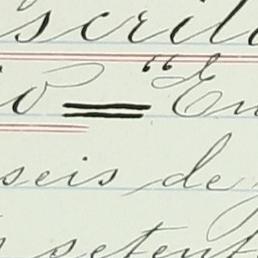 scrit
o = "En
seis de
setent